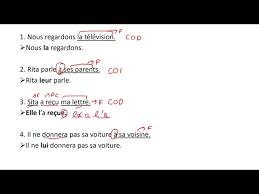 1. Nous regardons la télévision. F COD
➤Nous la regardons.
2. Rita parle à ses parents. F COI
➤Rita leur parle.
F PC
3. Sita a reçu ma lettre. → F COD
➤Elle l'a reçue.
F
4. Il ne donnera pas sa voiture à sa voisine.
➤Il ne lui donnera pas sa voiture.